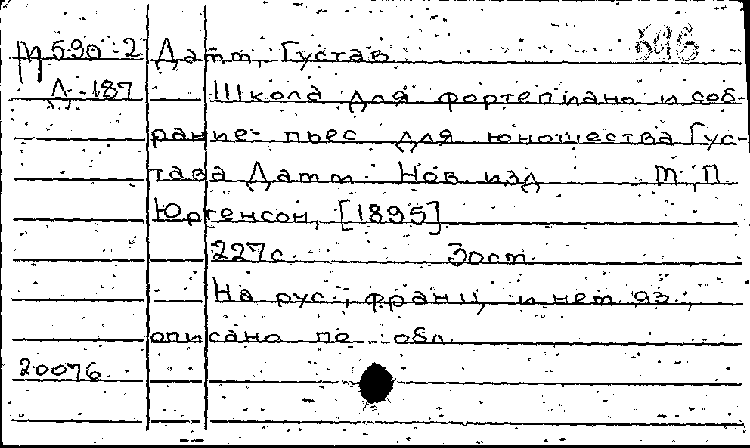 М 590-2 Дамм, Густав 596
Д-187 Школа для фортепиано и соб-
рание пьес для юношества Гус-
тава Дамм. Нов. изд. М., П.
Юргенсон, [1895]
227 с. 30 см.
На рус., франц. и нем. яз.,
описано по обл.
20076